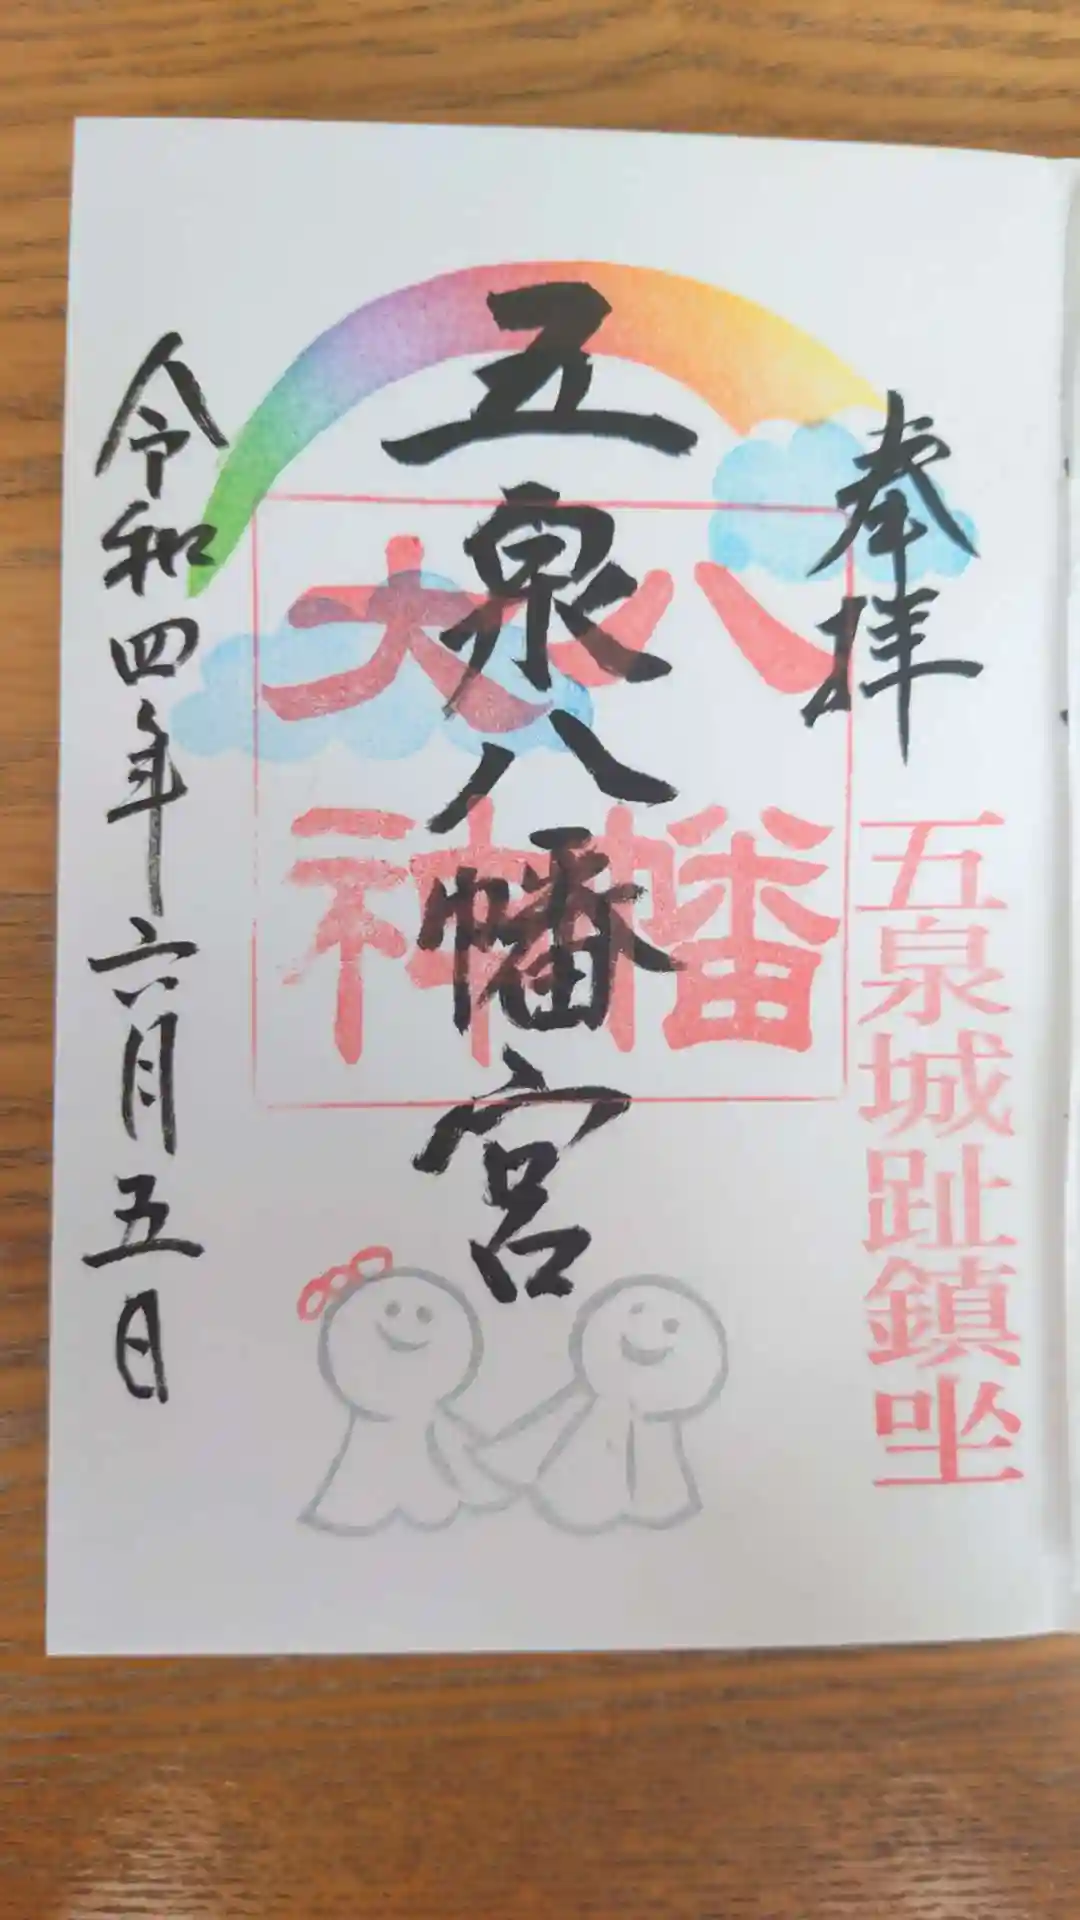 奉拝
五泉城趾鎮坐
五泉八幡宮
八幡
大神
令和四年六月五日